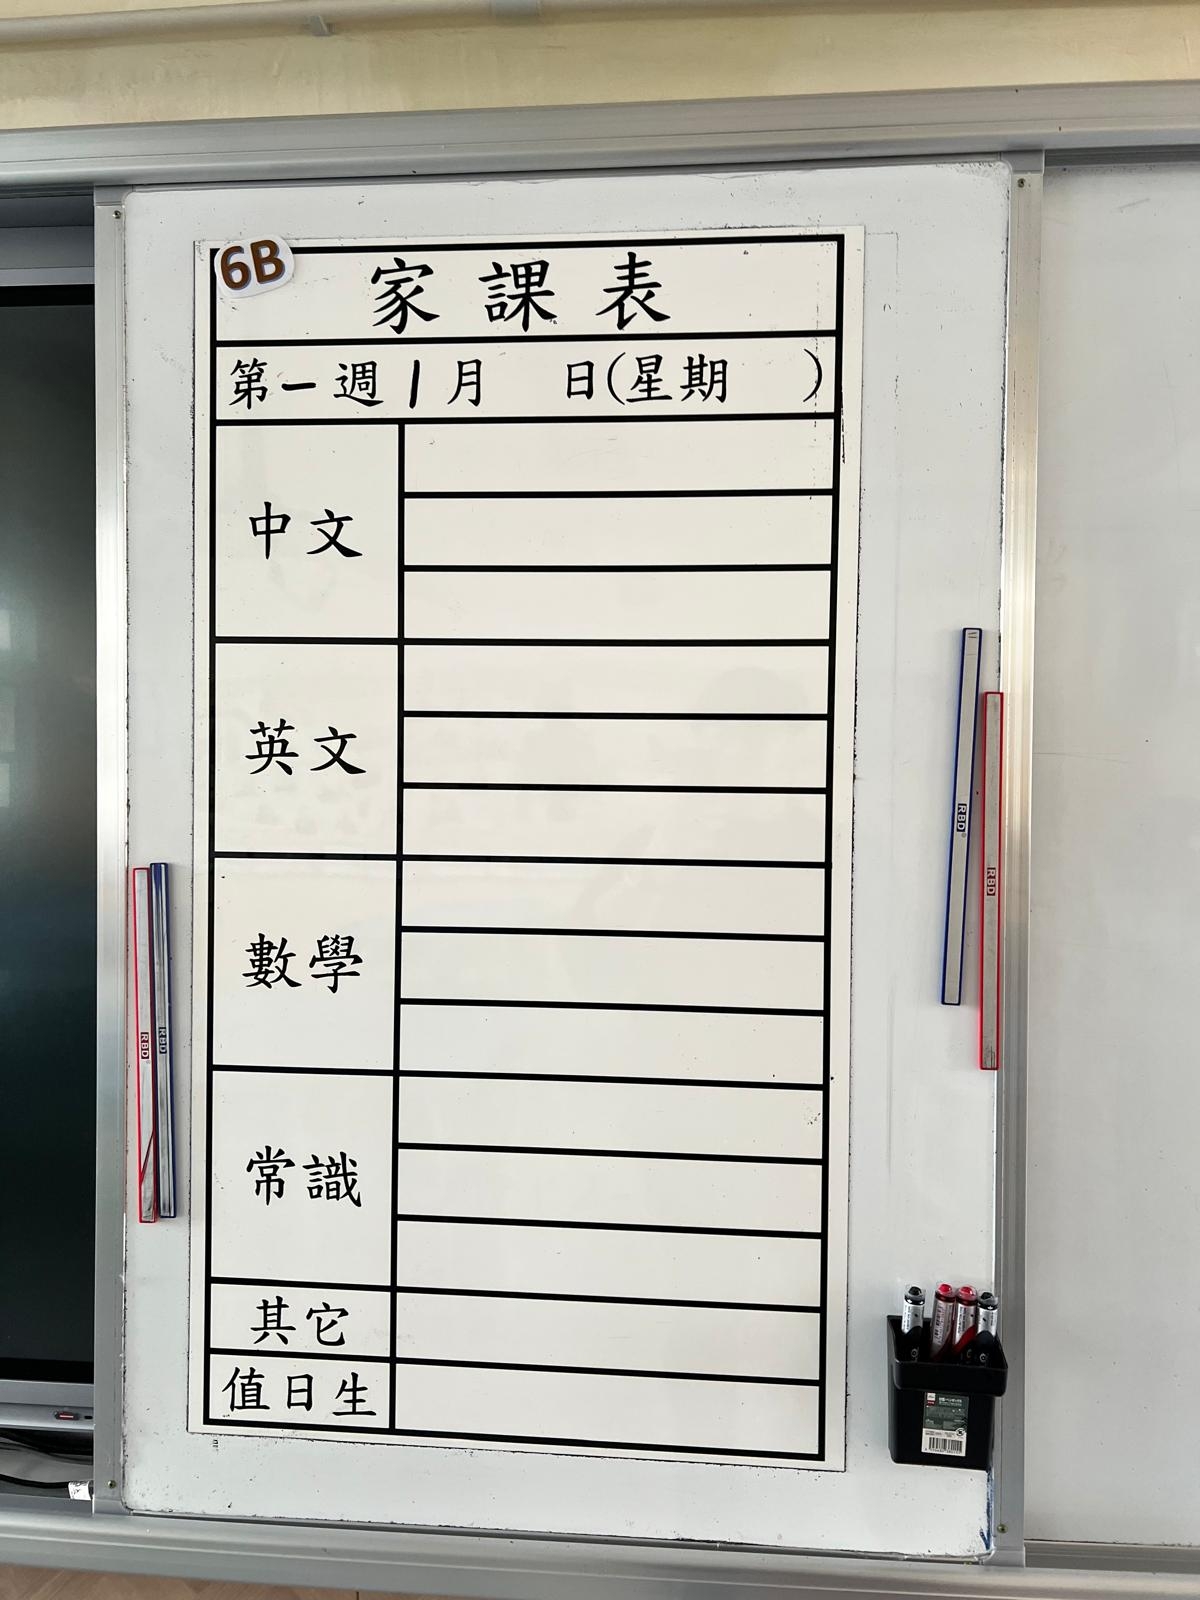 6B
家課表
第一週1月 日(星期 )
中文
英文
數學
常識
其它
值日生
RBD
RBD
RBD
RBD